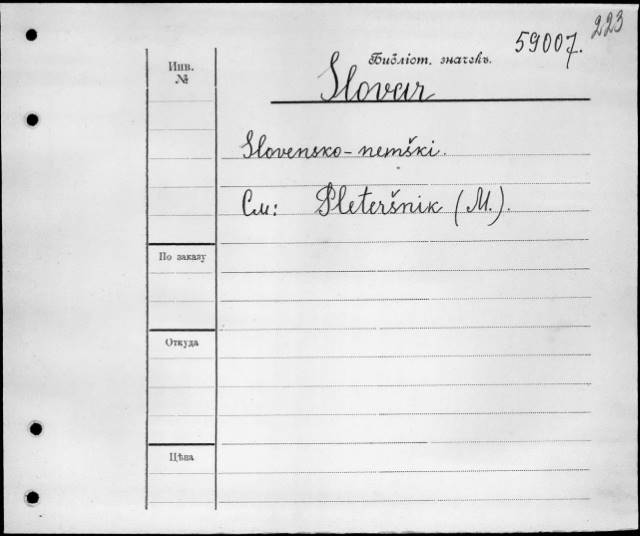 223
59007.
Инв.
№
Библіот. значекъ.
Slovar
Slovensko-nemški.
См: Pleteršnik (M.).
По заказу
Откуда
Цѣна